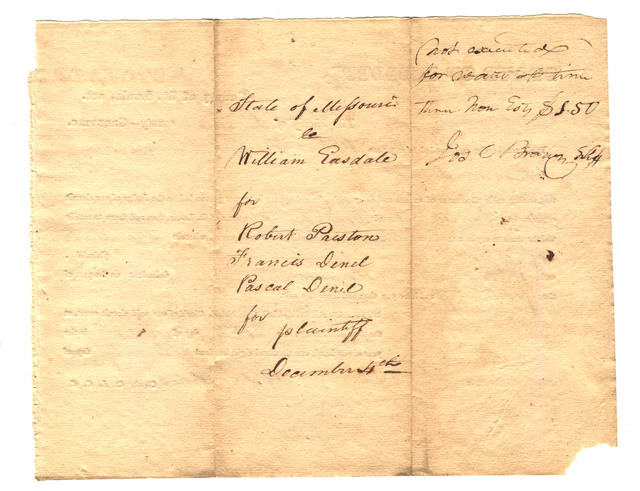 State of Missouri
vs
William Easdale
for
Robert Paiston
Francis Denel
Pascal Denil
for plaintiff
December 4th
not executed
for want of time
three Non Est $1.50
Jos C Brown Shff